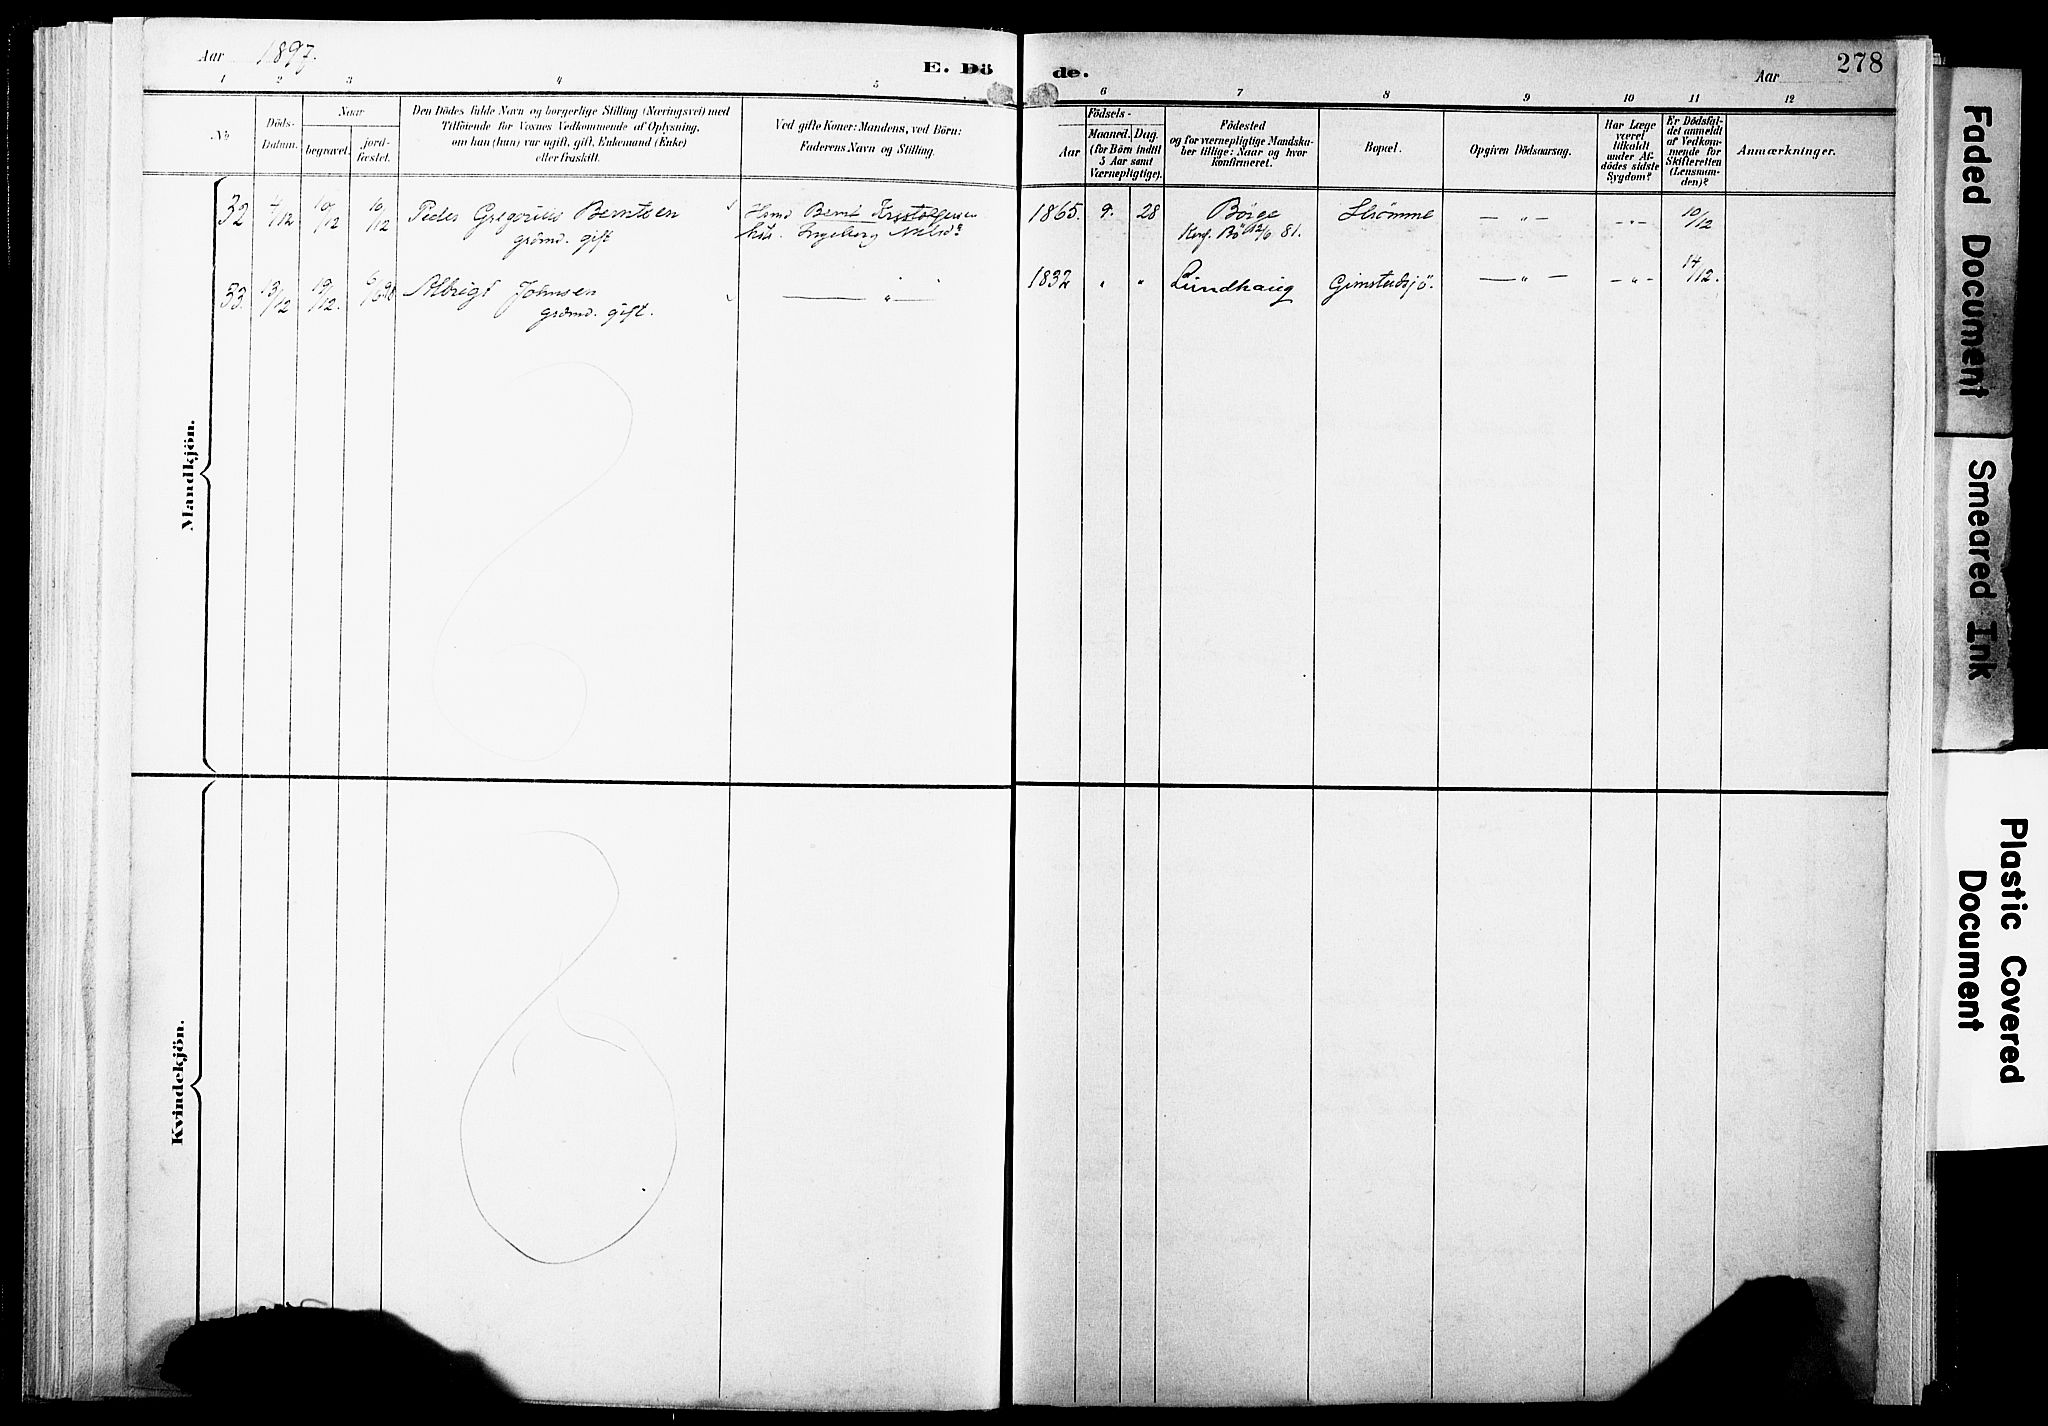 Aar 1897.
E. Dö
de.
Aar
278
1 2 3 4 5 6 7 8 9 10 11 12
No
Döds-
Datum.
Naar
begravet.
jord-
fæstet.
Den Dödes fulde Navn og borgerlige Stilling (Næringsvei) med
Tilföiende for Voxnes Vedkommende af Oplysning,
om han (hun) var ugift, gift, Enkemand (Enke)
eller fraskilt.
Ved gifte Koner: Mandens, ved Börn:
Faderens Navn og Stilling.
Födsels-
Aar
Maaned. Dag.
(for Börn indtil
5 Aar samt
Værnepligtige).
Födested
og for værnepligtige Mandska-
ber tillige: Naar og hvor
konfirmeret.
Bopæl.
Opgiven Dödsaarsag.
Har Læge
været
tilkaldt
under Af-
dödes sidste
Sygdom?
Er Dödsfal-
det anmeldt
af Vedkom-
mende for
Skifteretten
(Lensman-
den)?
Anmærkninger.
Mandkjön.
32 4/12 10/12 10/12 Peder Gregorius Berntsen
grdmd. gift
Bernt Kristofersen
Ingeborg Nilsd.
1865. 9. 28 Börge Strömme — „ — - „ - 10/12
Konf. Bö 81.
33. 13/12 19/12. 6/6 98 Albrigt Johnsen — „ —
grdmd. gift.
1832 „ „ Lundhaug Gimstadsjö. — „ — - „ - 14/12.
Kvindekjön.
Faded Document
Smeared Ink
Plastic Covered
Document